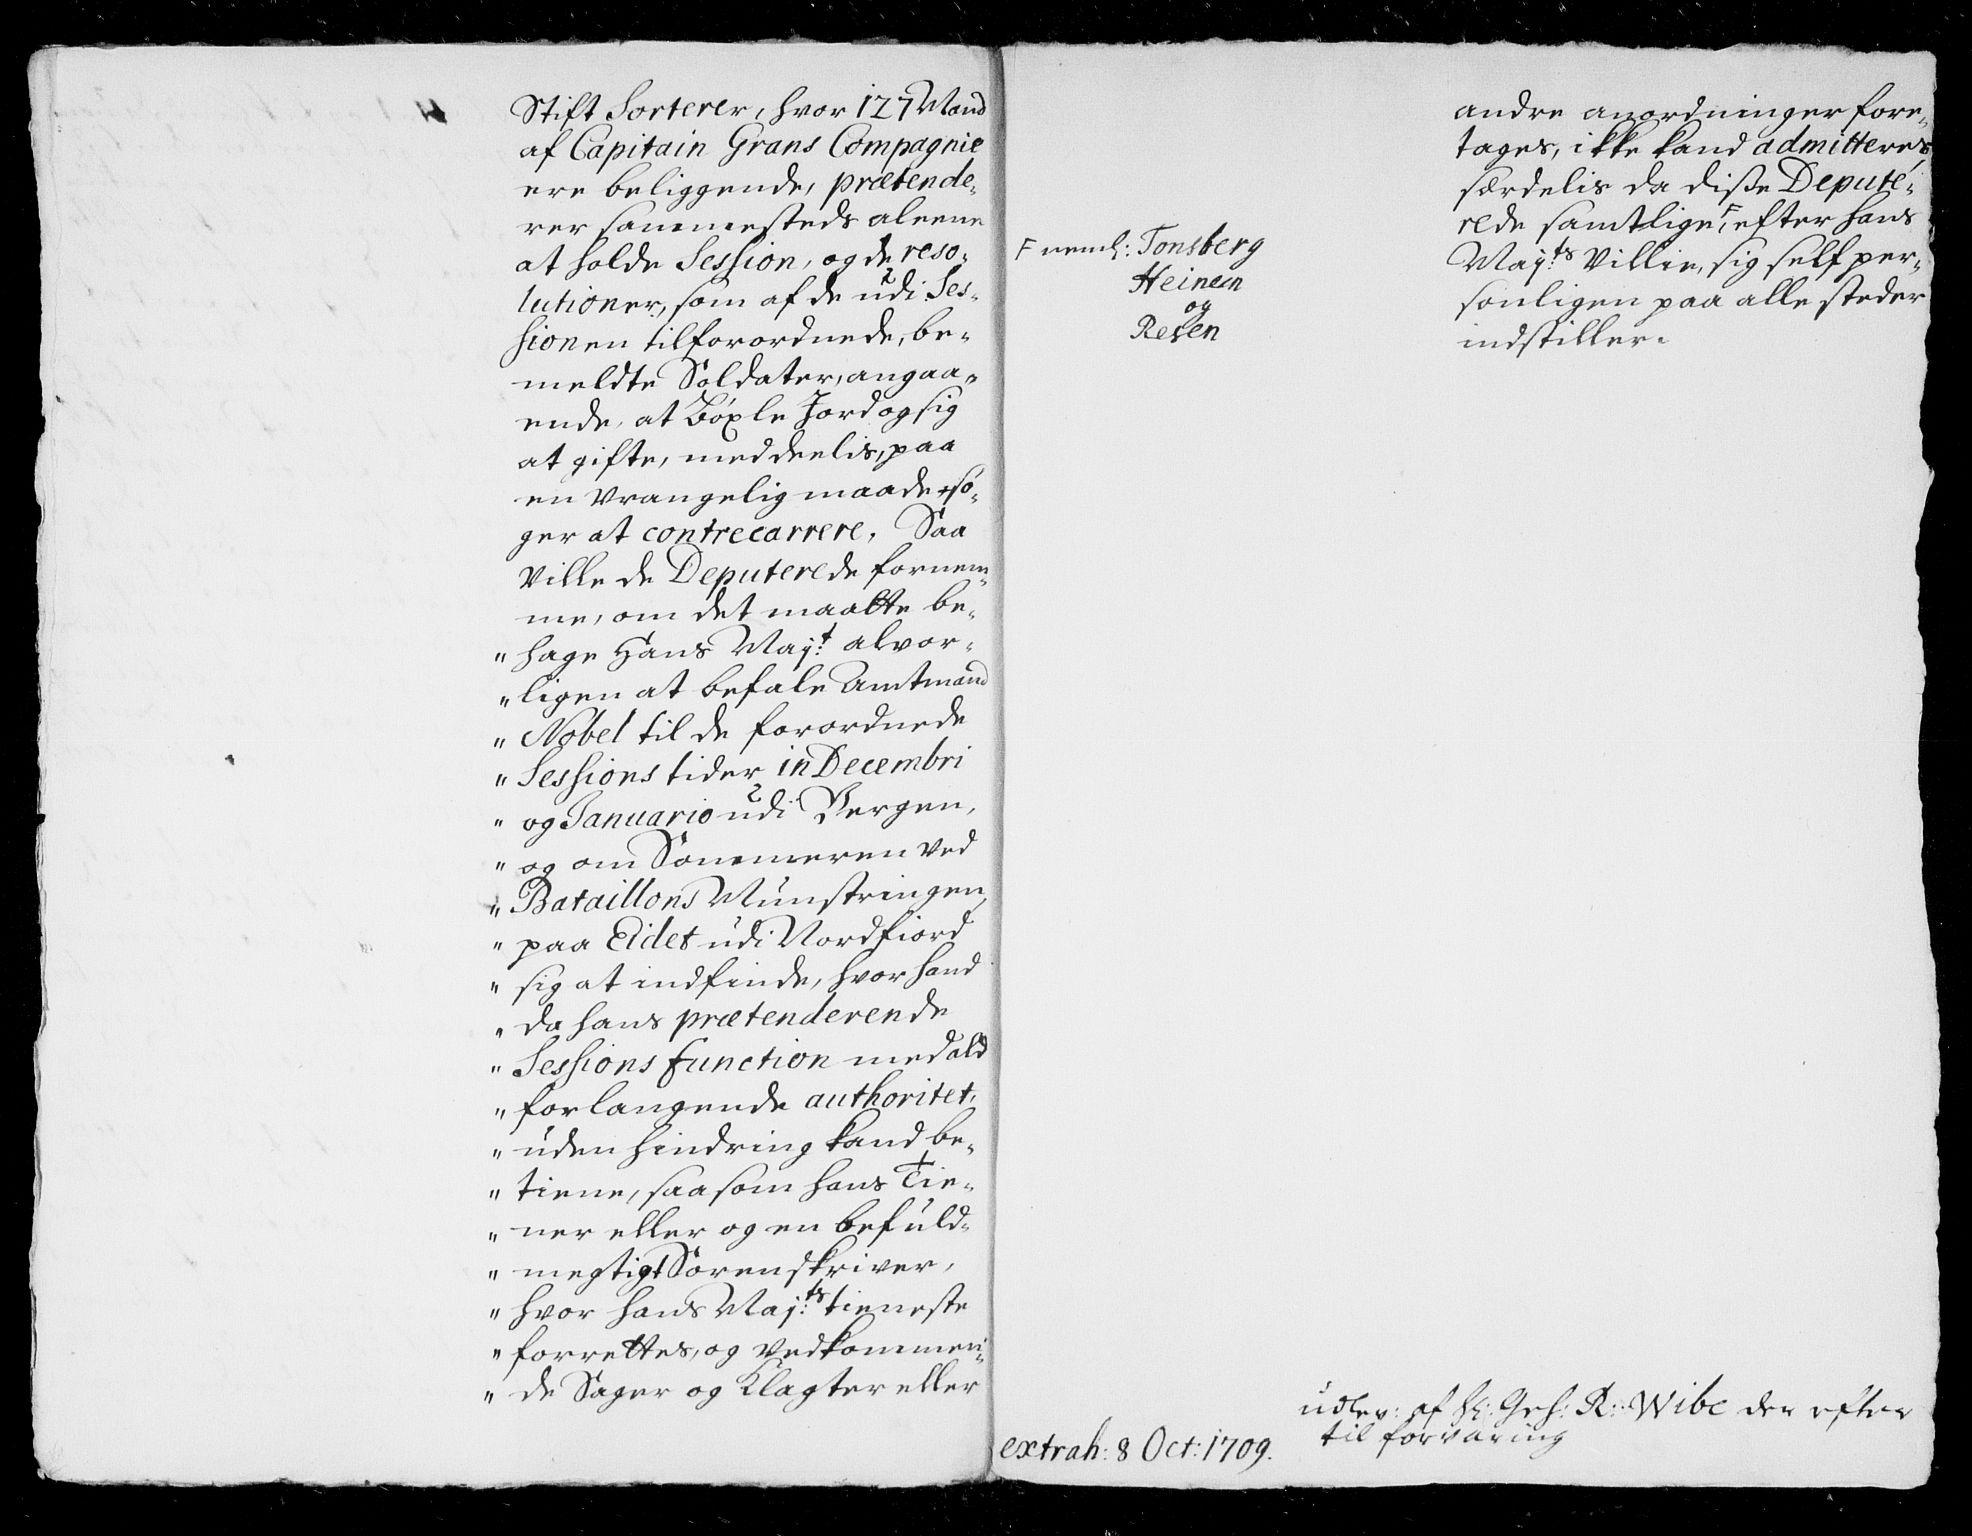 Stift Sorterer, hvor 127 Mand
af Capitain Grans Compagnie
ere beliggende, prætende-
rer sammesteds aleene
at holde Session, og de reso-
lutioner, som af de udi Ses-
sionen tilforordnede, be-
meldte Soldater, angaa-
ende, at Böxle Jord og sig
at gifte, meddeelis, paa
en vrangelig maade sö-
ger at contrecarrere. Saa
ville de Deputerede fornem-
me, om det maatte be-
" hage Hans Mayt: alvor-
" ligen at befale Amtmand
" Nobel til de forordnede
" Sessions tider in Decembri
" og Januario udi Bergen,
" og om Sommeren ved
" Bataillons Munstringen,
" paa Eidet udi Nordfiord
" sig at indfinde, hvor hand
" da hans prætenderende
" Sessions function med ald
" forlangende authoritet,
" uden hindring kand be-
" tiene, saasom hans Tie-
" ner eller og en befuld-
" megtiget Sorenskriver,
" hvor hans Maj:ts tieneste
" forrettes, og vedkommen-
" de Sager og Klagter eller
andre anordninger fore-
tages, ikke kand admitteres,
særdelis da disse Deputé-
rede samtlige, F efter hans
May:ts Villie, sig self per-
sonligen paa alle steder
indstiller.
F neml: Tonsberg
Heinen
og
Resen
extrah: 8 Oct: 1709.
udlev: af Hr: Geh: R: Wibe der efter
til forvaring